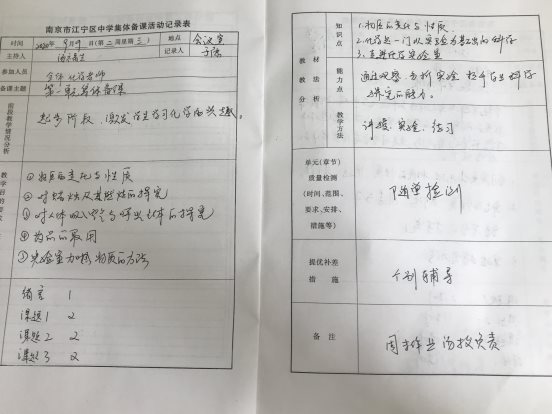 南京市江宁区中学集体备课活动记录表
时间 2020年9月9日(第二周星期三) 地点 会议室
主持人 记录人
参加人员 全体化学老师
备课主题 第一单元集体备课
阶段教学情况分析 起步阶段，激发学生学习化学的兴趣。
教学目的要求
①物质的变化与性质
②对蜡烛及其燃烧的探究
③对人体吸入空气与呼出气体的探究
④药品的取用
⑤实验室加热物质的方法
绪言 1
课题1 2
课题2 2
课题3 2
教材教法分析
知识点
1.物质的变化与性质
2.化学是一门以实验为基础的科学
3.走进化学实验室
能力点
通过观察、分析实验 培养学生科学
探究的能力。
教学方法 讲授、实验、练习
单元(章节)
质量检测
(时间、范围、
要求、安排、
措施等)
随单检测
提优补差
措施
个别辅导
备注
周末作业 汤 负责